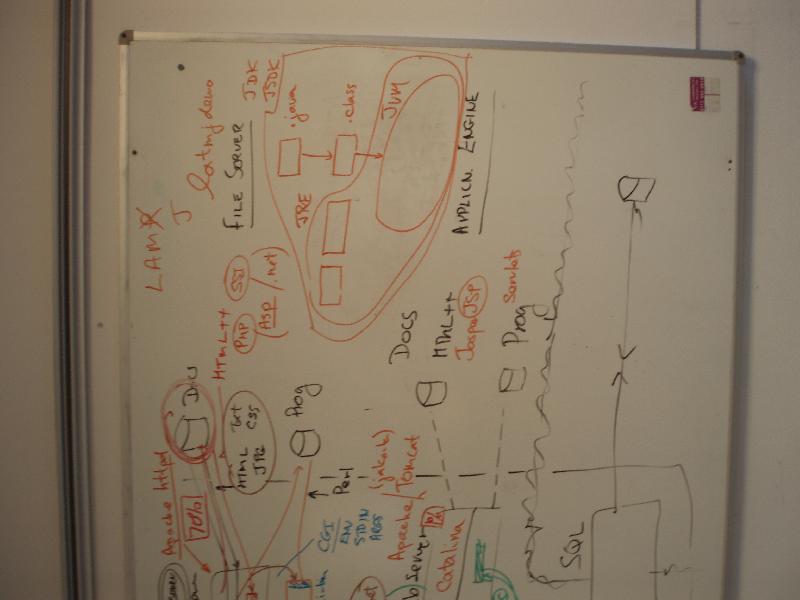 LAMP
J
Latmjdemo
FILE SERVER
JDK
JSDK
.java
.class
JVM
JRE
APPLICN ENGINE
HTML++
PHP
SSI
(ASP / .net)
DOCS
HTML++
Jasper JSP
Prog
Servlets
Apache httpd
70%
HTML Txt
JPG CSS
Prog
Perl
CGI
ENV
STDIN
ARGS
(jakarta)
Apache/Tomcat
Catalina
SQL